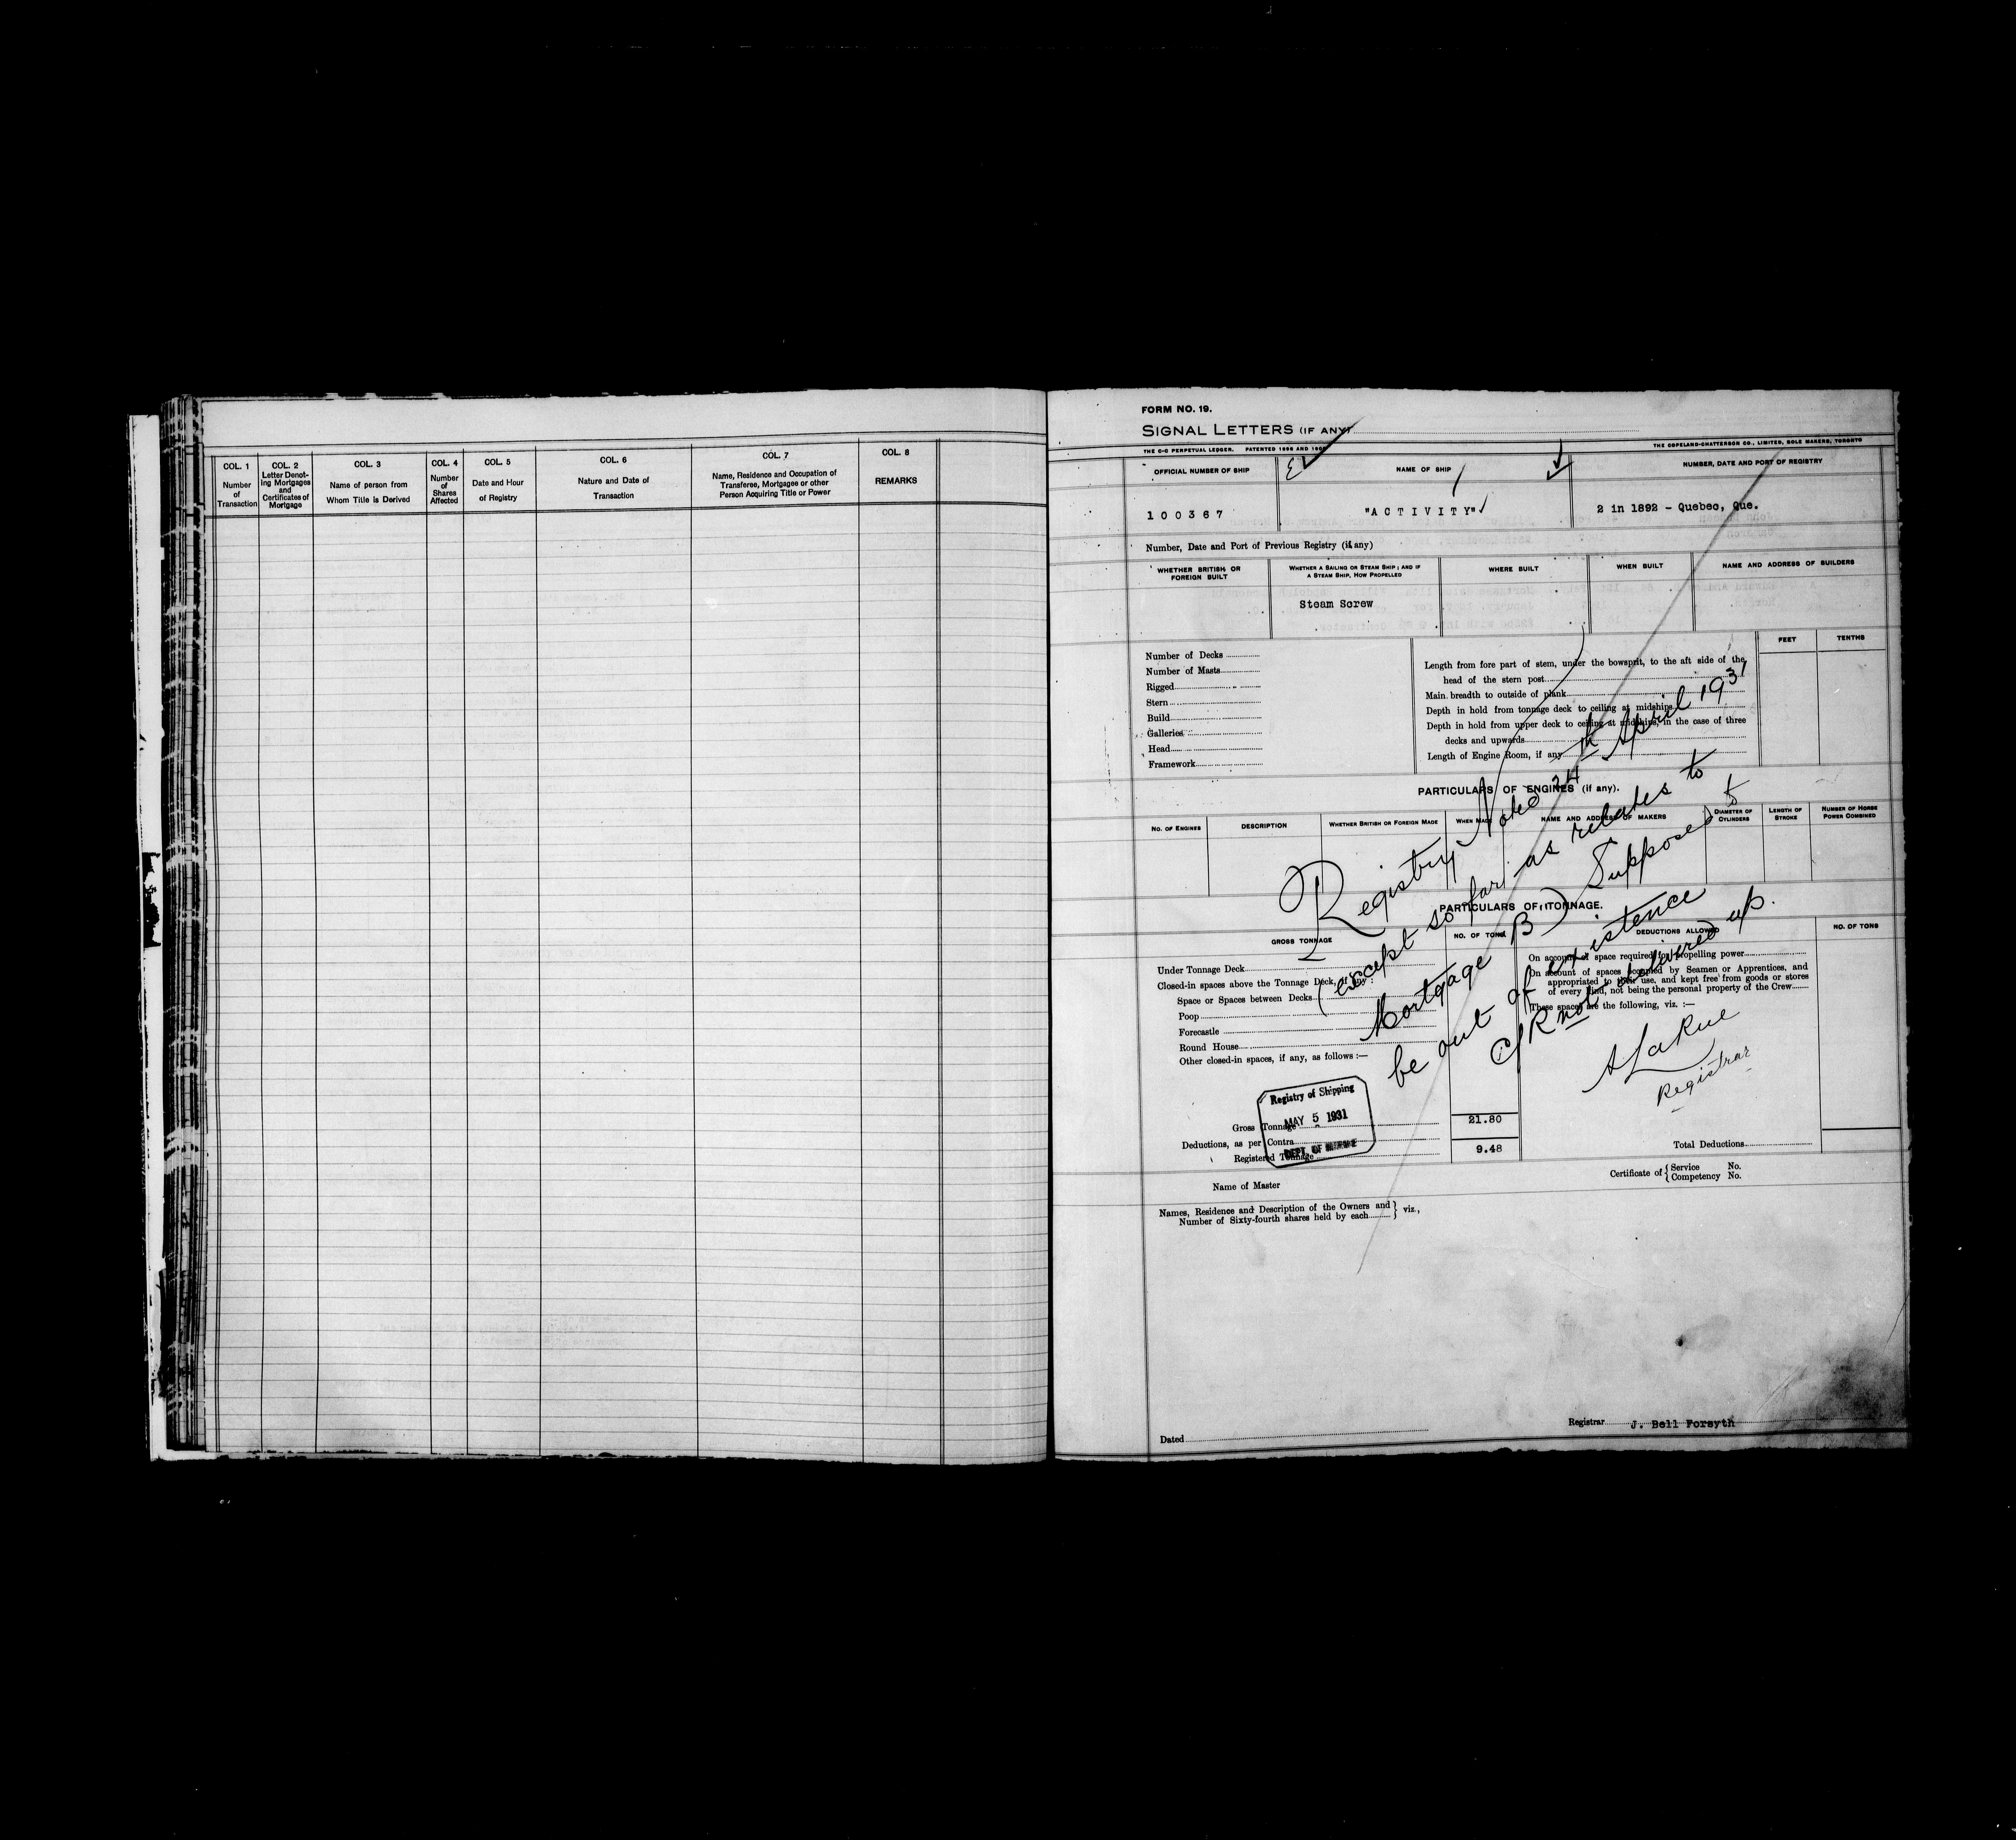 COL. 1 Number of Transaction
COL. 2 Letter Denoting Mortgages and Certificates of Mortgage
COL. 3 Name of person from Whom Title is Derived
COL. 4 Number of Shares Affected
COL. 5 Date and Hour of Registry
COL. 6 Nature and Date of Transaction
COL. 7 Name, Residence and Occupation of Transferee, Mortgagee or other Person Acquiring Title or Power
COL. 8 REMARKS
FORM NO. 19.
SIGNAL LETTERS (IF ANY)
THE C-C PERPETUAL LEDGER. PATENTED
THE COPELAND-CHATTERSON CO., LIMITED, SOLE MAKERS, TORONTO
OFFICIAL NUMBER OF SHIP
NAME OF SHIP
NUMBER, DATE AND PORT OF REGISTRY
100367
"ACTIVITY"
2 in 1892 - Quebec, Que.
Number, Date and Port of Previous Registry (if any)
WHETHER BRITISH OR FOREIGN BUILT
WHETHER A SAILING OR STEAM SHIP; AND IF A STEAM SHIP, HOW PROPELLED
WHERE BUILT
WHEN BUILT
NAME AND ADDRESS OF BUILDERS
Steam Screw
FEET
TENTHS
Number of Decks
Number of Masts
Rigged
Stern
Build
Galleries
Head
Framework
Length from fore part of stem, under the bowsprit, to the aft side of the
head of the stern post
Main breadth to outside of plank
Depth in hold from tonnage deck to ceiling at midships
Depth in hold from upper deck to ceiling at midships, in the case of three
decks and upwards
Length of Engine Room, if any
PARTICULARS OF ENGINES (if any).
NO. OF ENGINES
DESCRIPTION
WHETHER BRITISH OR FOREIGN MADE
WHEN MADE
NAME AND ADDRESS OF MAKERS
DIAMETER OF CYLINDERS
LENGTH OF STROKE
NUMBER OF HORSE POWER COMBINED
PARTICULARS OF TONNAGE.
GROSS TONNAGE
NO. OF TONS
DEDUCTIONS ALLOWED
NO. OF TONS
Under Tonnage Deck
Closed-in spaces above the Tonnage Deck, if any :
Space or Spaces between Decks
Poop
Forecastle
Round House
Other closed-in spaces, if any, as follows :—
On account of space required for propelling power
On account of spaces occupied by Seamen or Apprentices, and
appropriated to their use, and kept free from goods or stores
of every kind, not being the personal property of the Crew
These spaces are the following, viz. :—
Registry Noted 24th April 1931
(except so far as relates to
Mortgage B) Supposed to
be out of existence
C/R not delivered up.
A LaRue
Registrar
Registry of Shipping
MAY 5 1931
DEPT. OF MARINE
Gross Tonnage 21.80
Deductions, as per Contra
Registered Tonnage 9.48
Total Deductions
Name of Master
Certificate of { Service No.
Competency No.
Names, Residence and Description of the Owners and
Number of Sixty-fourth shares held by each } viz.,
Dated
Registrar J. Bell Forsyth